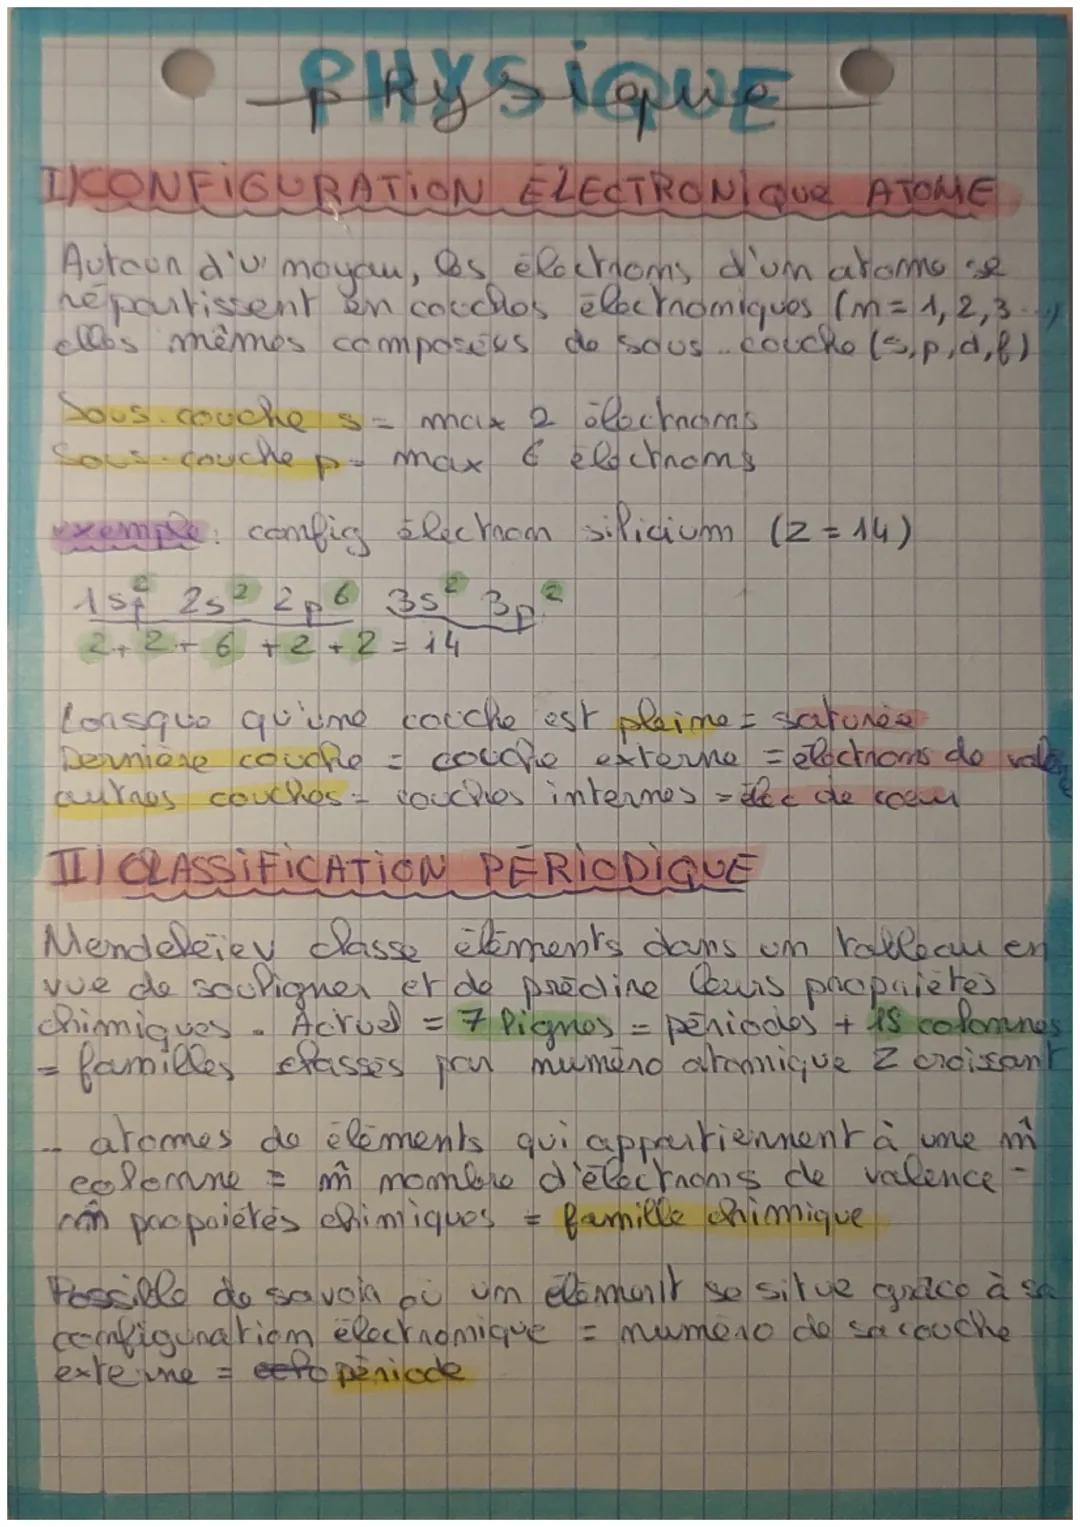 PHYSIQUE
physique
I) CONFIGURATION ÉLECTRONIQUE ATOME
Autour d'u noyau, les électrons d'un atome se
répartissent en couches électroniques (n = 1, 2, 3 ...)
elles mêmes composées de sous-couche (s, p, d, f)
Sous-couche s = max 2 électrons
Sous-couche p = max 6 électrons
exemple: config électron silicium (Z = 14)
1s² 2s² 2p⁶ 3s² 3p²
2 + 2 + 6 + 2 + 2 = 14
Lorsque qu'une couche est pleine = saturée
Dernière couche = couche externe = électrons de valen
autres couches = couches internes = élec de cœur
II) CLASSIFICATION PÉRIODIQUE
Mendeleïev classe éléments dans un tableau en
vue de souligner et de prédire leurs propriétés
chimiques. Actuel = 7 lignes = périodes + 18 colonnes
= familles classés par numéro atomique Z croissant
- atomes de éléments qui appartiennent à une m̂
colonne = m̂ nombre d'électrons de valence =
m̂ propriétés chimiques = famille chimique
Possible de savoir où un élément se situe grâce à sa
configuration électronique = numéro de sa couche
externe = période